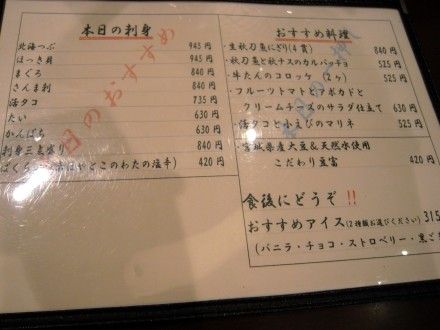 本日の刺身
北海つぶ 945円
ほっき貝 945円
まぐろ 840円
さんま刺 840円
活タコ 735円
たい 630円
かんぱち 630円
刺身三点盛り 840円
ばくらい(ほやとこのわたの塩辛) 420円
本日のおすすめ
おすすめ料理
・生秋刀魚にぎり(4貫) 840円
・秋刀魚と秋ナスのカルパッチョ 525円
・牛たんのコロッケ(2ヶ) 525円
・フルーツトマトとアボカドと
クリームチーズのサラダ仕立て 630円
・活タコと小えびのマリネ 525円
・宮城県産大豆&天然水使用
こだわり豆富 420円
食後にどうぞ!!
おすすめアイス(2種類お選びください) 315
(バニラ・チョコ・ストロベリー・黒ごま